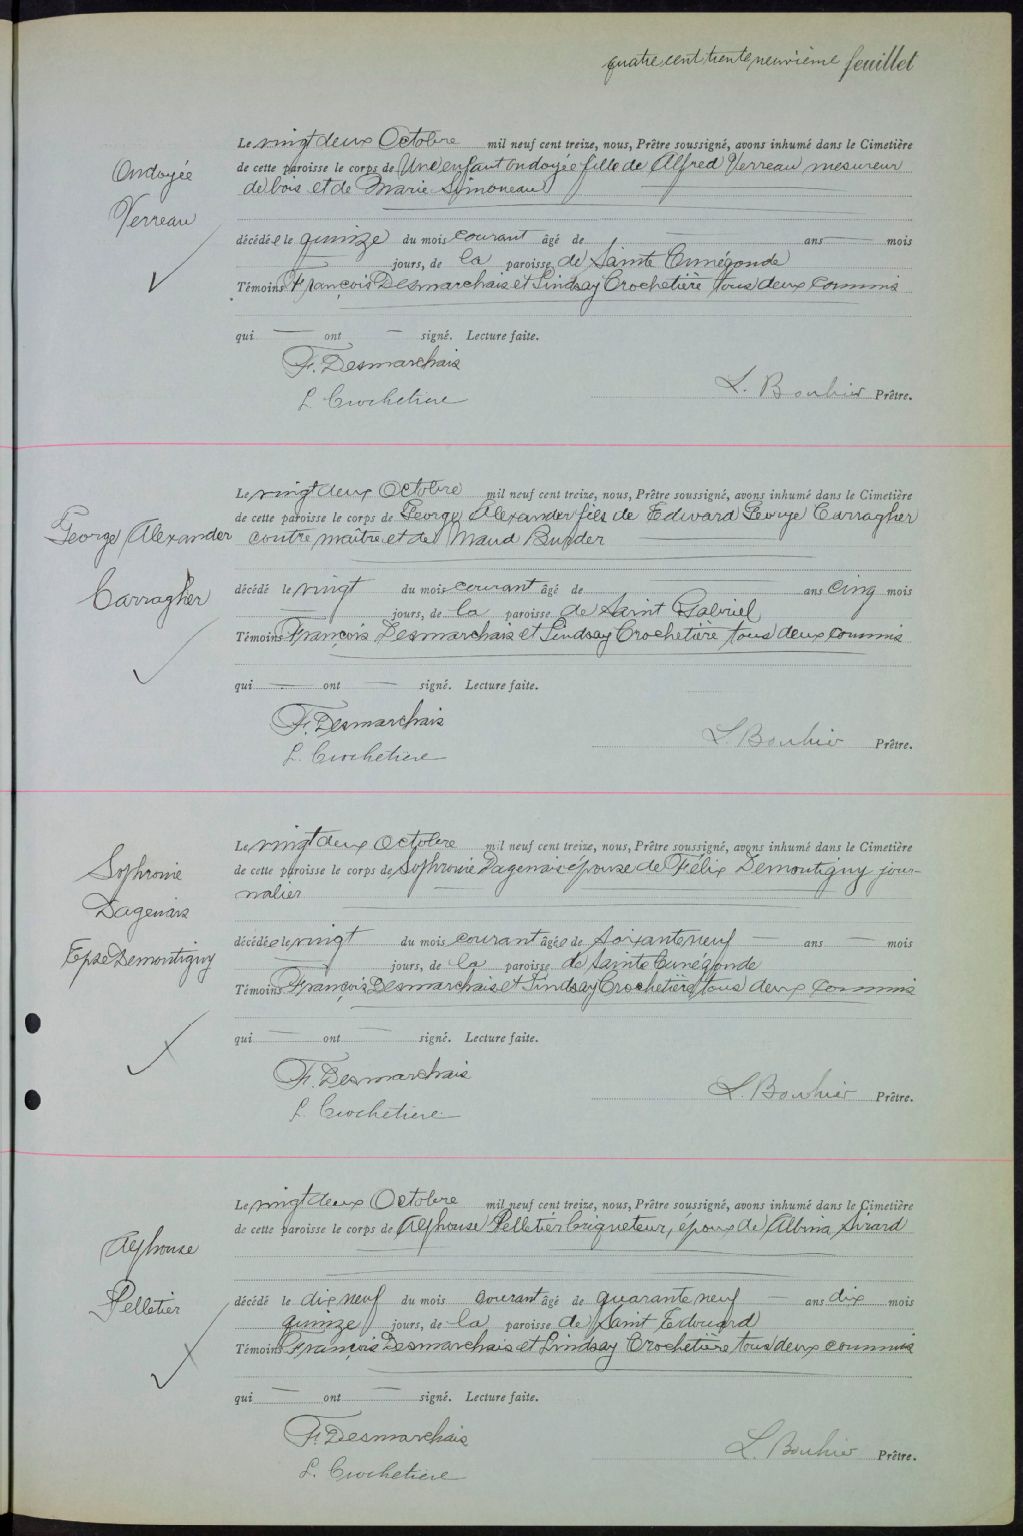 quatre cent trente neuvième feuillet
Ondoyée
Verreau
Le vingt deux Octobre mil neuf cent treize, nous, Prêtre soussigné, avons inhumé dans le Cimetière
de cette paroisse le corps de Une enfant ondoyée fille de Alfred Verreau mesureur
de bois et de Marie Simoneau
décédée le quinze du mois courant âgé de ans mois
jours, de la paroisse de Sainte Cunégonde
Témoins François Desmarchais et Lindsay Crochetière tous deux commis
qui ont signé. Lecture faite.
F. Desmarchais
L. Crochetiere
L. Bouhier Prêtre.
George Alexander
Carragher
Le vingt deux Octobre mil neuf cent treize, nous, Prêtre soussigné, avons inhumé dans le Cimetière
de cette paroisse le corps de George Alexander fils de Edward George Carragher
contre maître et de Maud Burder
décédé le vingt du mois courant âgé de ans cinq mois
jours, de la paroisse de Saint Gabriel
Témoins François Desmarchais et Lindsay Crochetière tous deux commis
qui ont signé. Lecture faite.
F. Desmarchais
L. Crochetiere
L. Bouhier Prêtre.
Sophronie
Dagenais
Epse Demontigny
Le vingt deux Octobre mil neuf cent treize, nous, Prêtre soussigné, avons inhumé dans le Cimetière
de cette paroisse le corps de Sophronie Dagenais épouse de Félix Demontigny jour-
nalier
décédée le vingt du mois courant âgée de soixante neuf ans mois
jours, de la paroisse de Sainte Cunégonde
Témoins François Desmarchais et Lindsay Crochetière tous deux commis
qui ont signé. Lecture faite.
F. Desmarchais
L. Crochetiere
L. Bouhier Prêtre.
Alphonse
Pelletier
Le vingt deux Octobre mil neuf cent treize, nous, Prêtre soussigné, avons inhumé dans le Cimetière
de cette paroisse le corps de Alphonse Pelletier briqueteur, époux de Albina Sirard
décédé le dix neuf du mois courant âgé de quarante neuf ans dix mois
quinze jours, de la paroisse de Saint Edouard
Témoins François Desmarchais et Lindsay Crochetière tous deux commis
qui ont signé. Lecture faite.
F. Desmarchais
L. Crochetiere
L. Bouhier Prêtre.